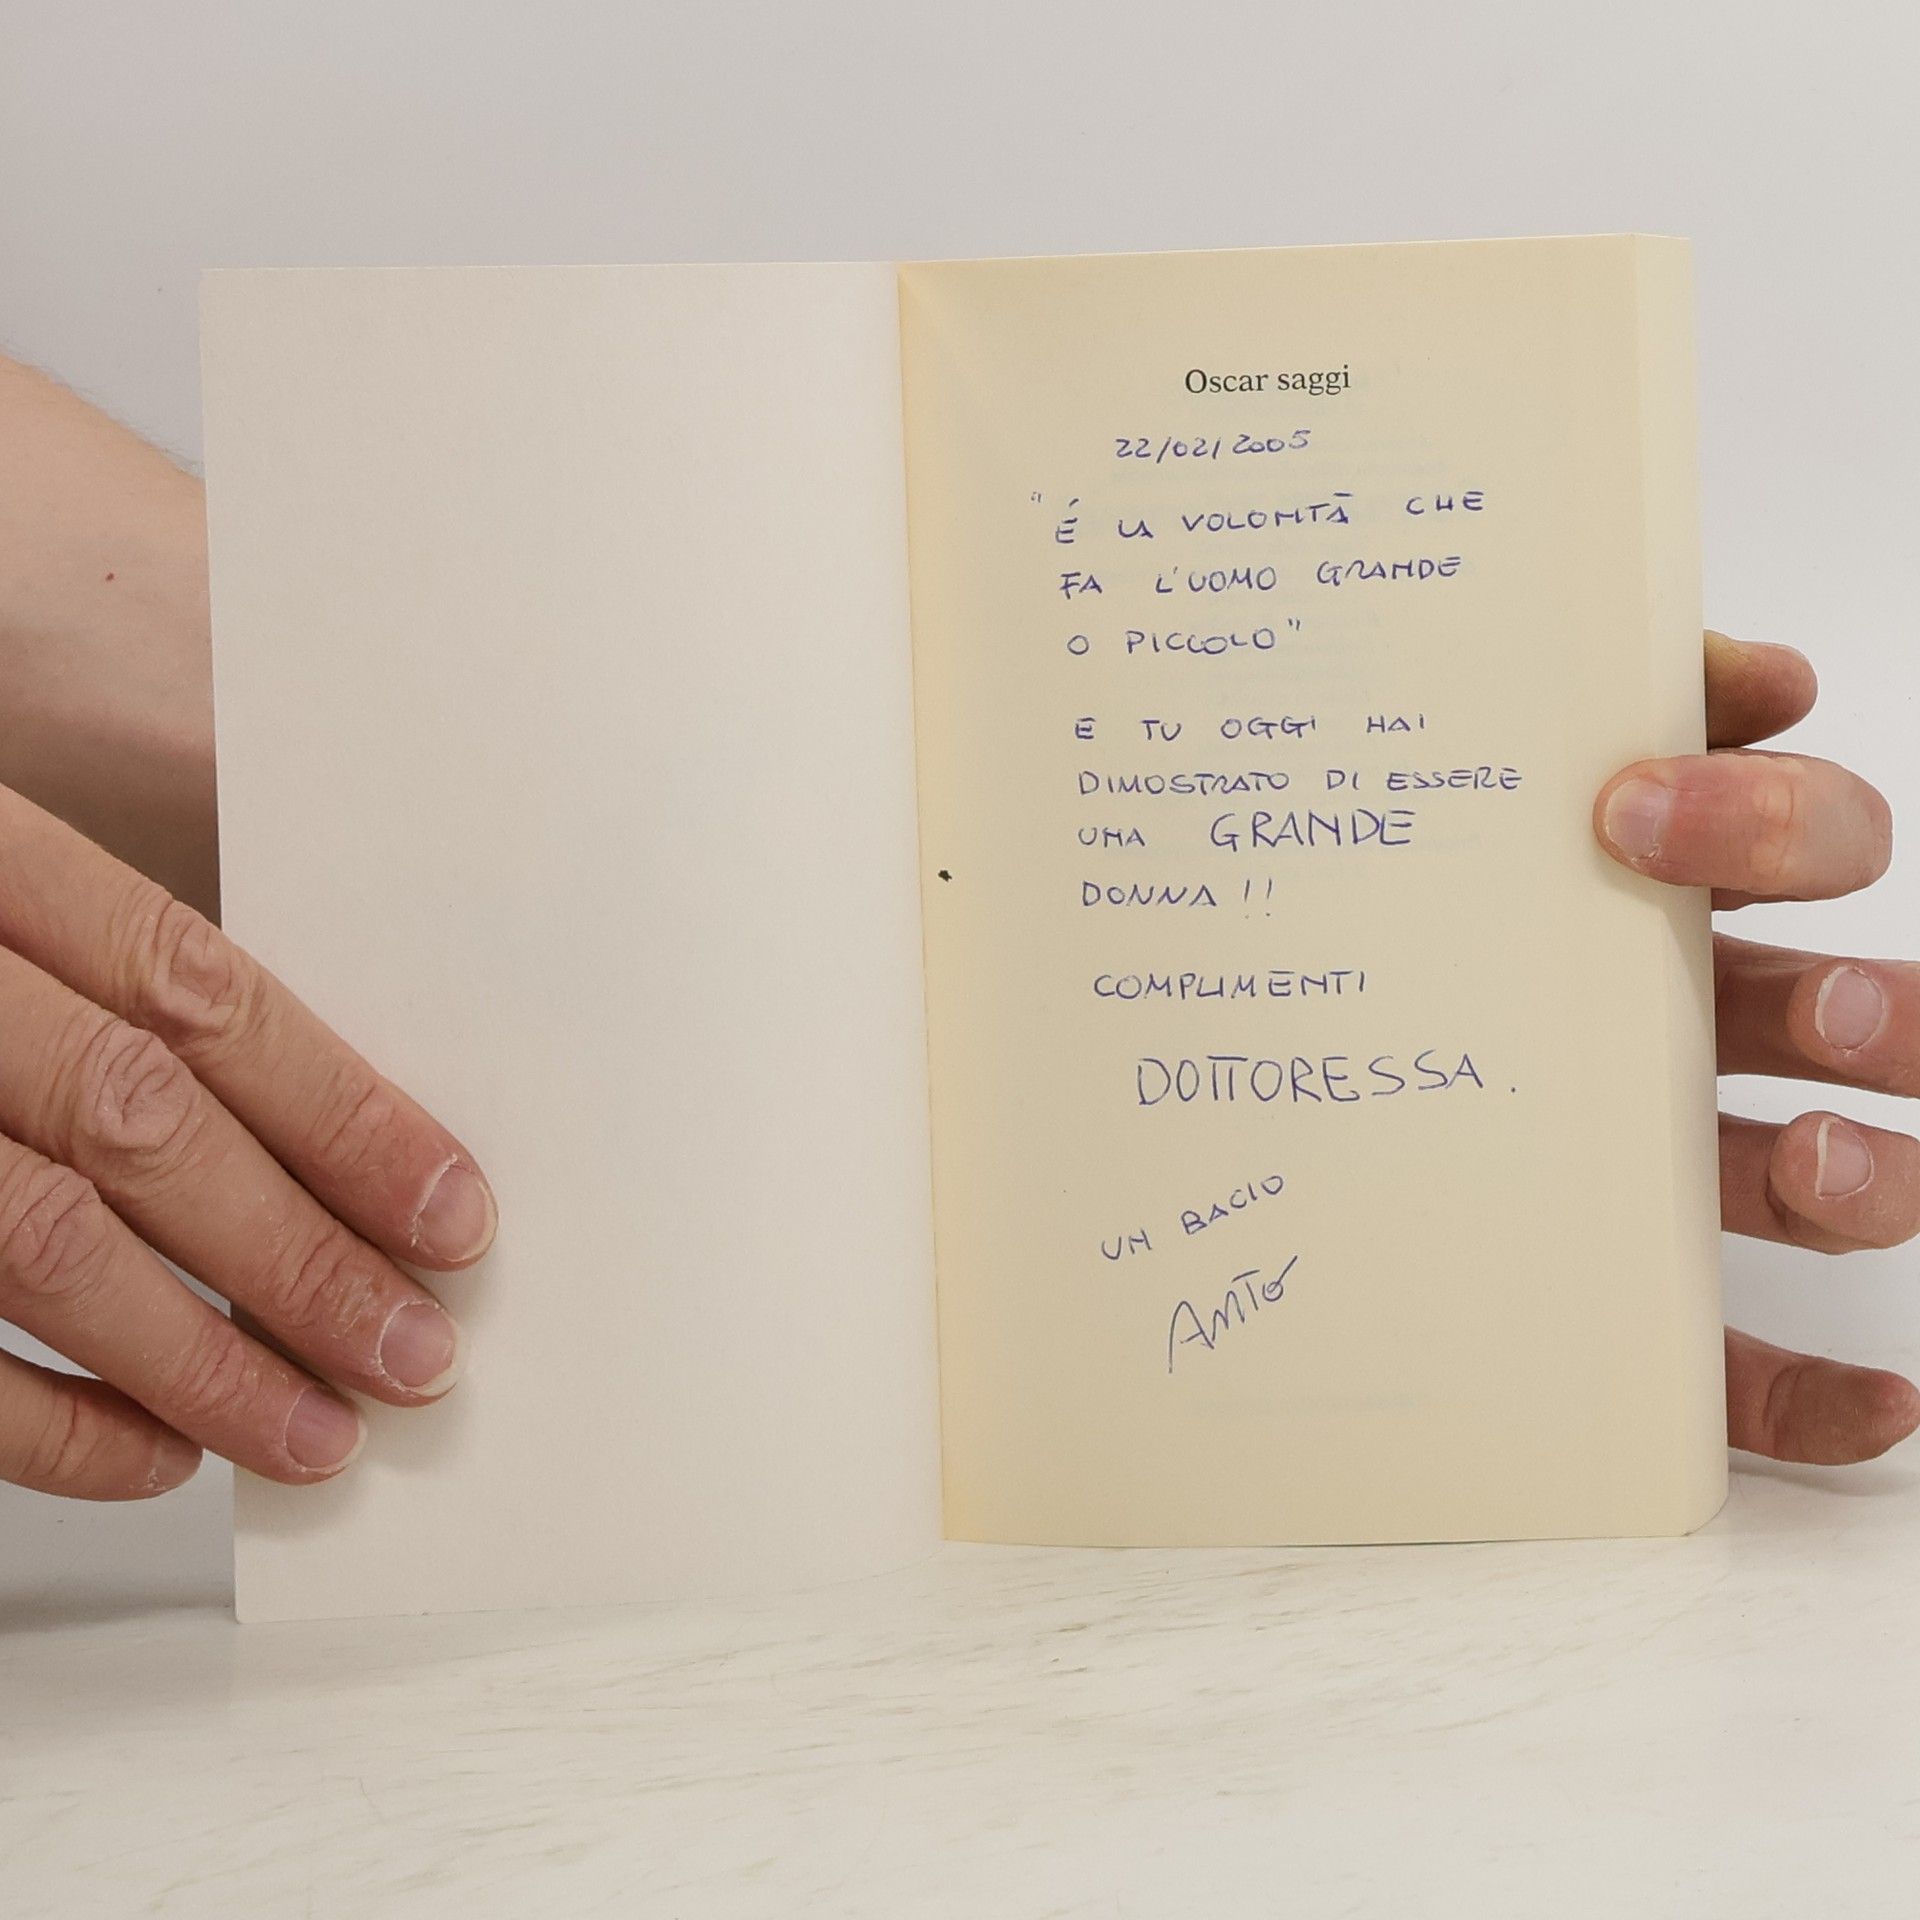 Oscar saggi
22/02/2005
"É LA VOLONTÀ CHE
FA L'UOMO GRANDE
O PICCOLO"
E TU OGGI HAI
DIMOSTRATO DI ESSERE
UNA GRANDE
DONNA!!
COMPLIMENTI
DOTTORESSA.
UN BACIO
Anto